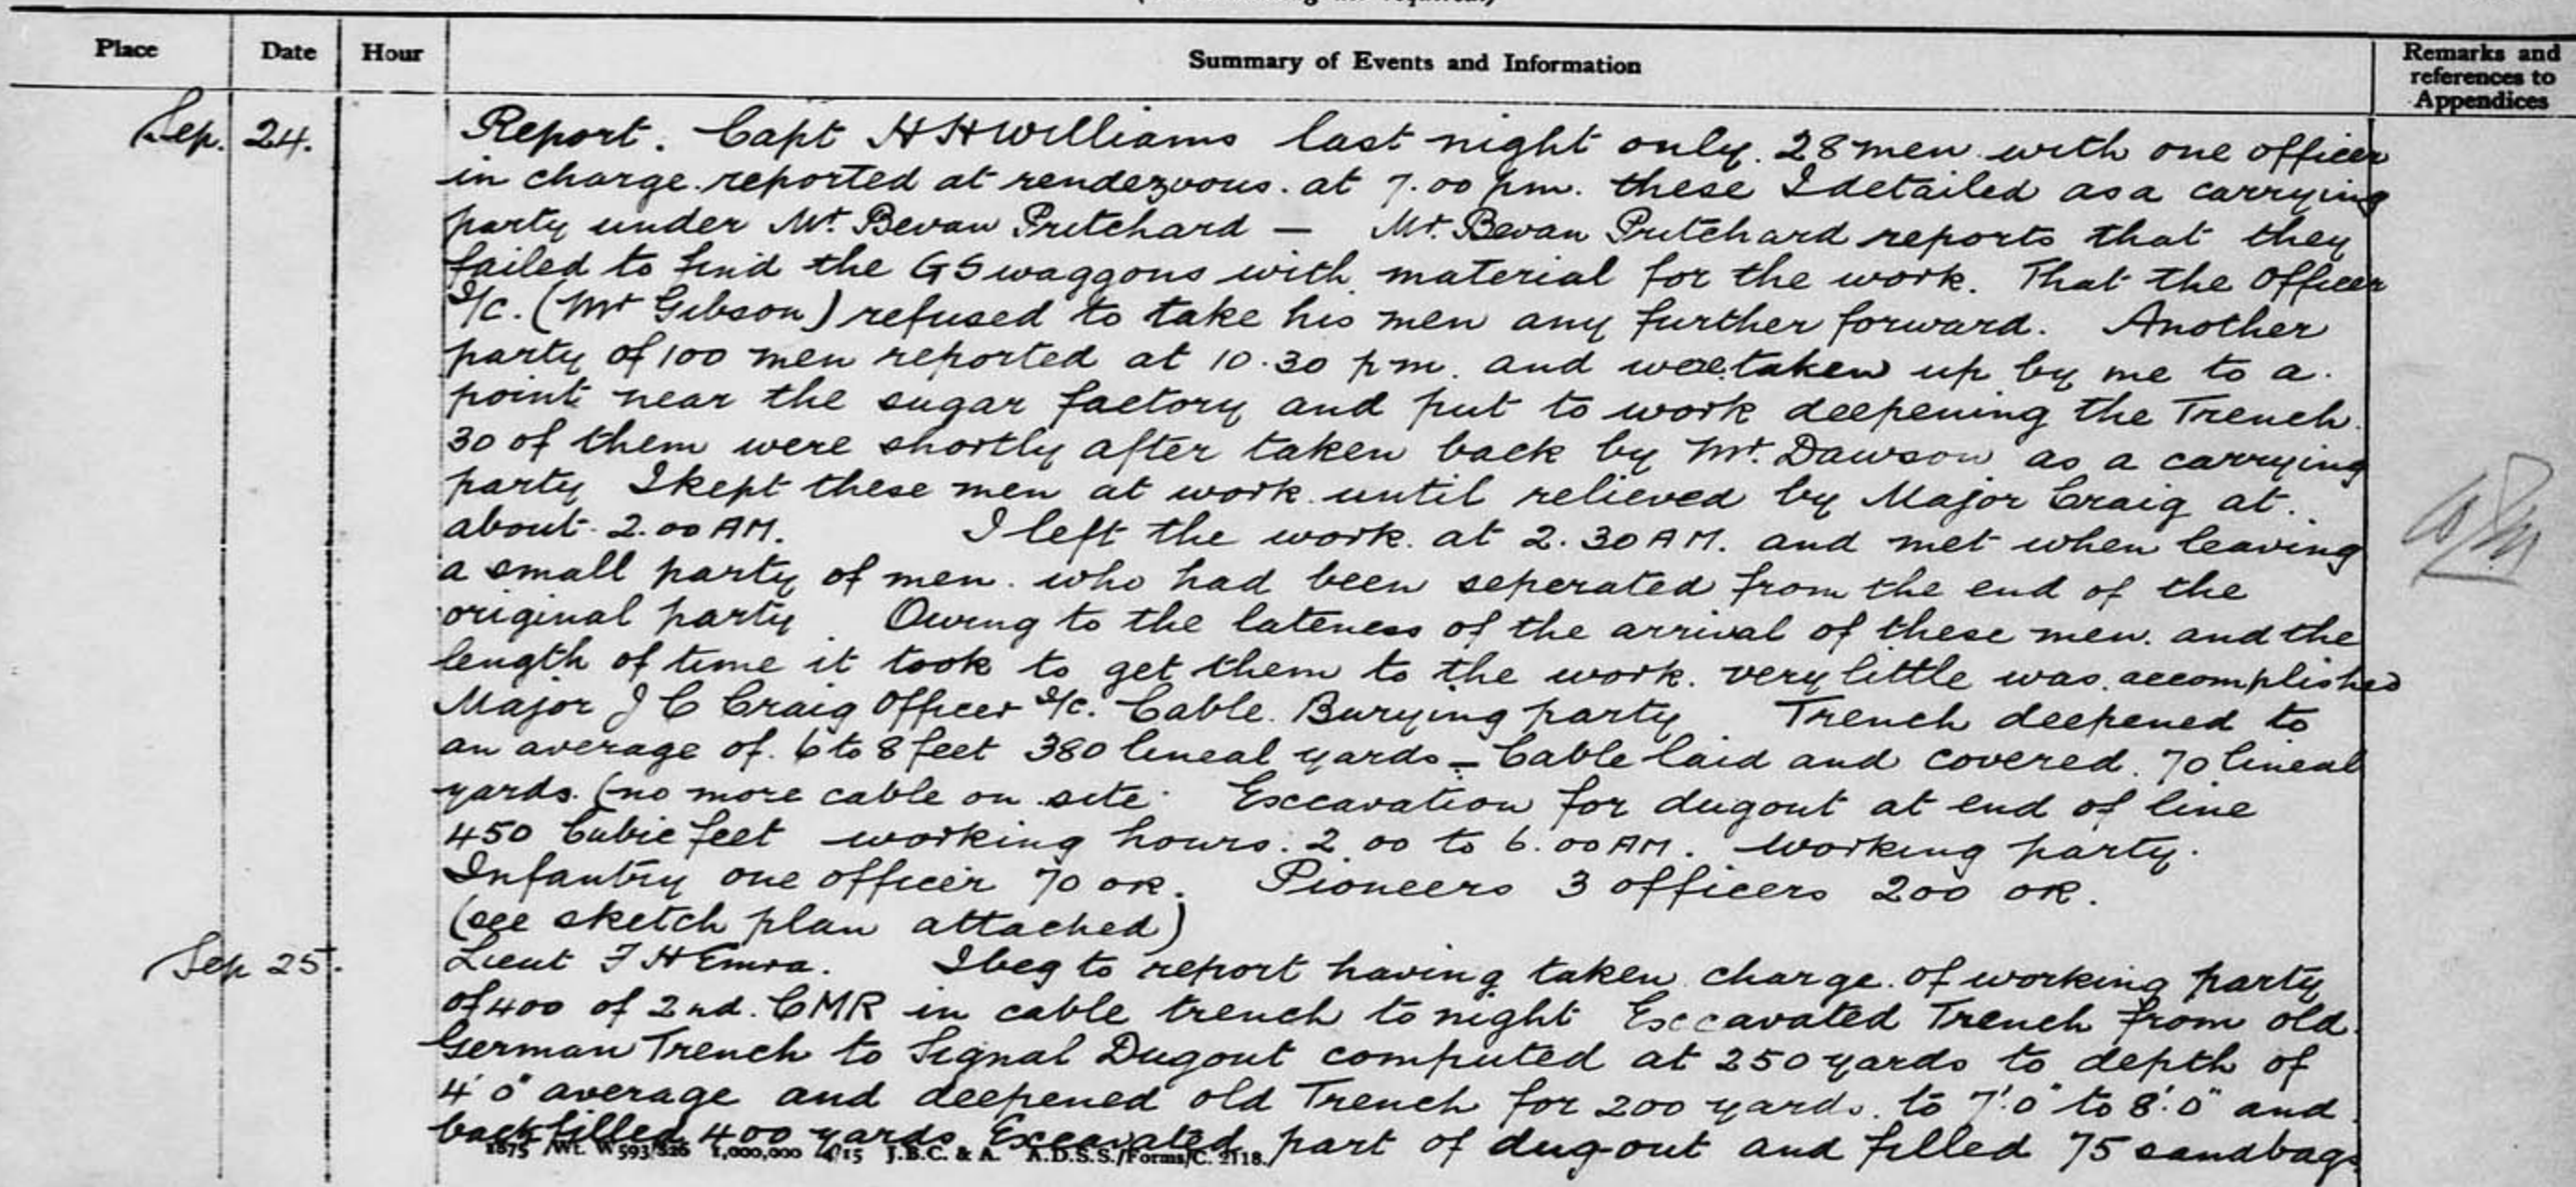 Place Date Hour Summary of Events and Information Remarks and references to Appendices
Sep. 24. Report. Capt H H Williams last night only. 28 men with one officer
in charge reported at rendezvous. at 7.00 pm. these I detailed as a carrying
party under Mr. Bevan Pritchard — Mr. Bevan Pritchard reports that they
failed to find the GS waggons with material for the work. That the Officer
I/C. (Mr Gibson) refused to take his men any further forward. Another
party of 100 men reported at 10.30 pm. and were taken up by me to a
point near the sugar factory and put to work deepening the Trench.
30 of them were shortly after taken back by Mr. Dawson as a carrying
party I kept these men at work until relieved by Major Craig at.
about 2.00 AM. I left the work. at 2.30 AM. and met when leaving
a small party of men. who had been seperated from the end of the
original party. Owing to the lateness of the arrival of these men. and the
length of time it took to get them to the work. very little was accomplished
Major J C Craig Officer I/c. Cable. Burying party Trench deepened to
an average of. 6 to 8 feet 380 lineal yards — Cable laid and covered. 70 lineal
yards. (no more cable on site. Excavation for dugout at end of line
450 Cubic feet working hours. 2.00 to 6.00 AM. Working party.
Infantry one officer 70 OR. Pioneers 3 officers 200 OR.
(see sketch plan attached)
Sep 25. Lieut F H Emra. I beg to report having taken charge. of working party
of 400 of 2nd. CMR in cable trench to night Excavated Trench from old
German Trench to Signal Dugout computed at 250 yards to depth of
4'0" average and deepened old Trench for 200 yards. to 7'.0" to 8'.0" and
backfilled 400 yards Excavated part of dug-out and filled 75 sandbags
1875 Wt. W593/826 1,000,000 4/15 J.B.C. & A. A.D.S.S./Forms/C. 2118.